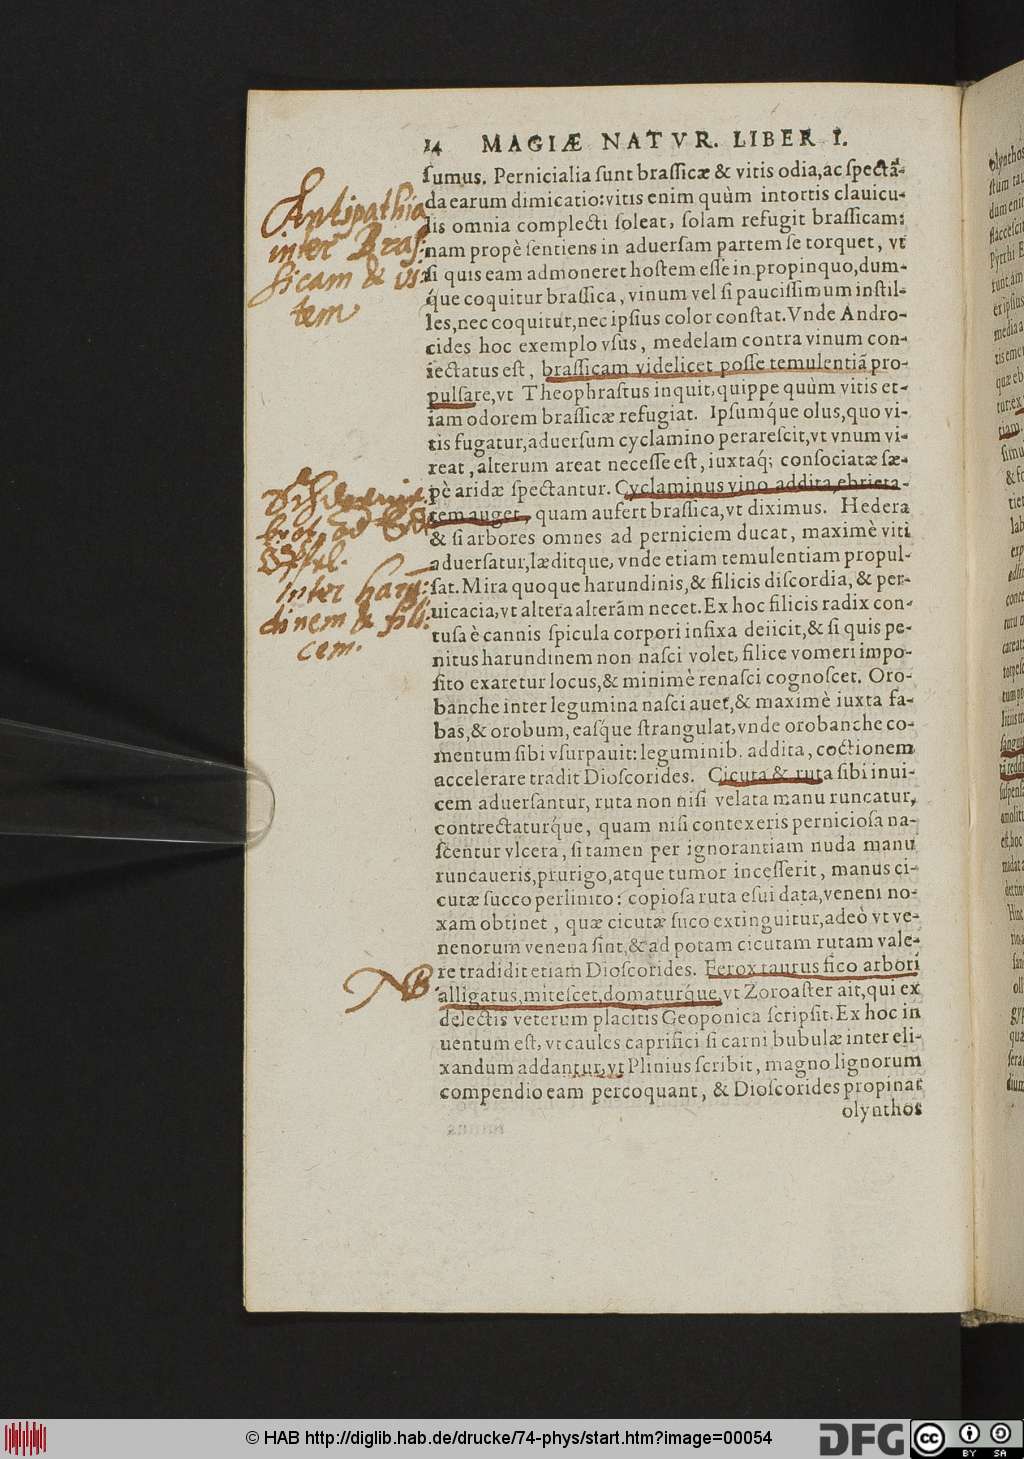 14 MAGIÆ NATVR. LIBER I.
ſumus. Pernicialia ſunt braſſicæ & vitis odia, ac ſpectã-
da earum dimicatio: vitis enim quùm intortis clauicu-
lis omnia complecti ſoleat, ſolam refugit braſſicam:
nam propè ſentiens in aduerſam partem ſe torquet, vt
ſi quis eam admoneret hoſtem eſſe in propinquo, dum-
q́ue coquitur braſſica, vinum vel ſi pauciſſimum inſtil-
les, nec coquitur, nec ipſius color conſtat. Vnde Andro-
cides hoc exemplo vſus, medelam contra vinum con-
iectatus eſt, braſſicam videlicet poſſe temulentiã pro-
pulſare, vt Theophraſtus inquit, quippe quùm vitis et-
iam odorem braſſicæ refugiat. Ipſumq́ue olus, quo vi-
tis fugatur, aduerſum cyclamino perareſcit, vt vnum vi-
reat, alterum areat neceſſe eſt, iuxtaq́; conſociatæ ſæ-
pè aridæ ſpectantur. Cyclaminus vino addita ebrieta-
tem auget, quam aufert braſſica, vt diximus. Hedera
& ſi arbores omnes ad perniciem ducat, maximè viti
aduerſatur, læditque, vnde etiam temulentiam propul-
ſat. Mira quoque harundinis, & filicis diſcordia, & per-
uicacia, vt altera alterãm necet. Ex hoc filicis radix con-
tuſa è cannis ſpicula corpori infixa deiicit, & ſi quis pe-
nitus harundinem non naſci volet, filice vomeri impo-
ſito exaretur locus, & minimè renaſci cognoſcet. Oro-
banche inter legumina naſci auet, & maximè iuxta fa-
bas, & orobum, eaſq́ue ſtrangulat, vnde orobanche co-
mentum ſibi vſurpauit: leguminib. addita, coctionem
accelerare tradit Dioſcorides. Cicuta & ruta ſibi inui-
cem aduerſantur, ruta non niſi velata manu runcatur,
contrectaturq́ue, quam niſi contexeris pernicioſa na-
ſcentur vlcera, ſi tamen per ignorantiam nuda manu
runcaueris, prurigo, atque tumor inceſſerit, manus ci-
cutæ ſucco perlinito: copioſa ruta eſui data, veneni no-
xam obtinet, quæ cicutæ ſuco extinguitur, adeò vt ve-
nenorum venena ſint, & ad potam cicutam rutam vale-
re tradidit etiam Dioſcorides. Ferox taurus fico arbori
alligatus, miteſcet, domaturq́ue, vt Zoroaſter ait, qui ex
delectis veterum placitis Geoponica ſcripſit. Ex hoc in
uentum eſt, vt caules caprifici ſi carni bubulæ inter eli-
xandum addantur, vt Plinius ſcribit, magno lignorum
compendio eam percoquant, & Dioſcorides propinat
olynthos
Antipathia
inter Braſ:
ſicam & vi:
tem
inter harũ:
dinem & fili:
cem.
NB
© HAB http://diglib.hab.de/drucke/74-phys/start.htm?image=00054
DFG
cc BY SA